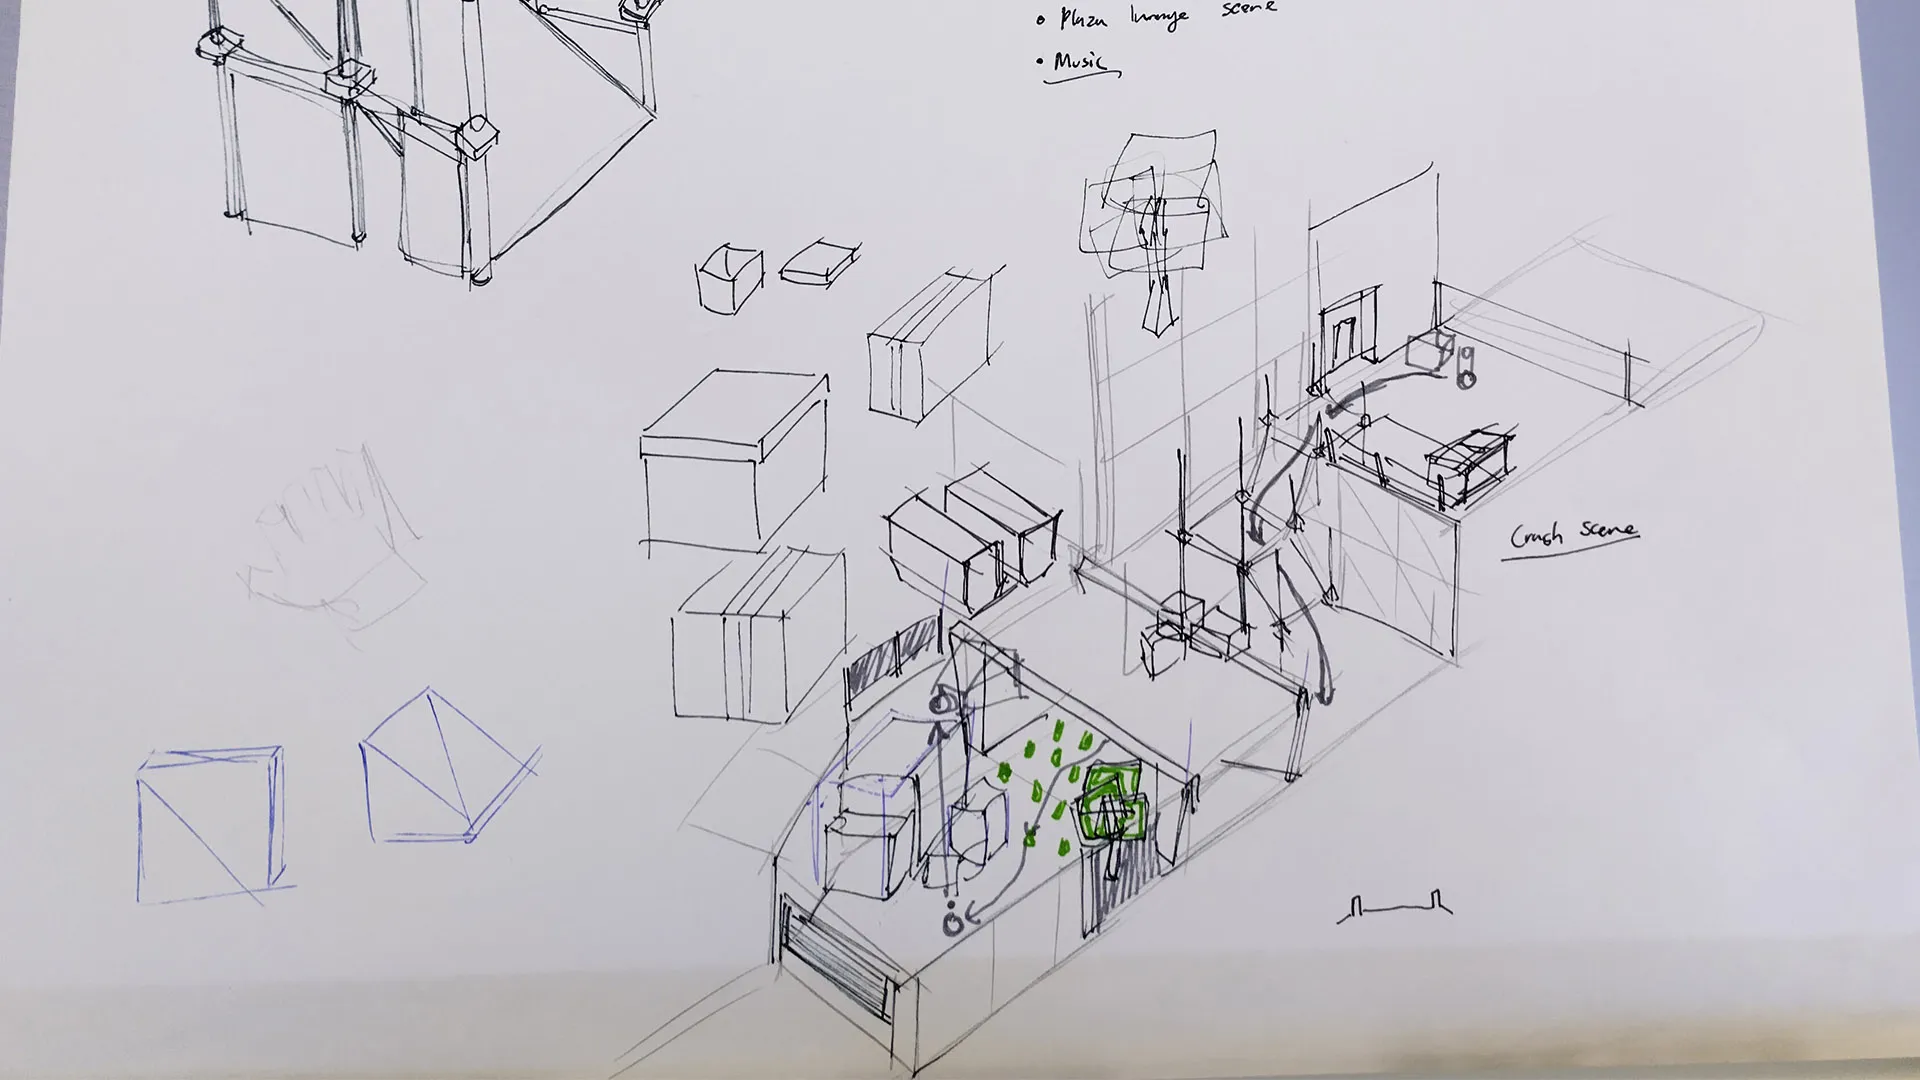 • Plaza lunge scene
• Music
Crash scene